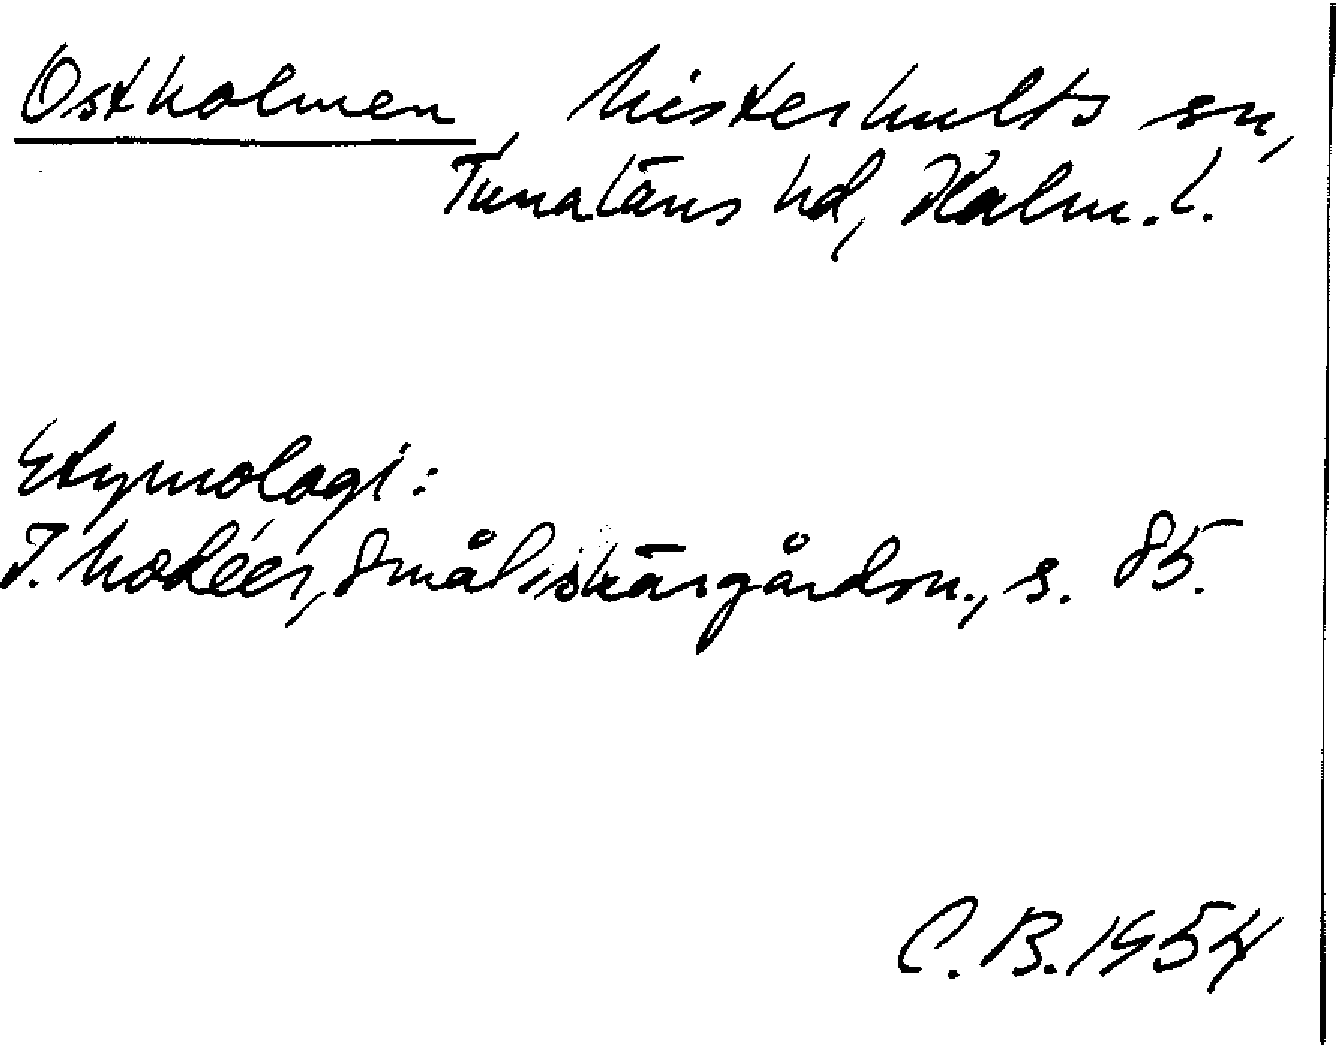 Ostholmen, Misterhults sn,
Tunaläns hd, Kalm. l.
Etymologi:
I. Modéer, Smål. skärgårdsn., s. 85.
C. B. 1954